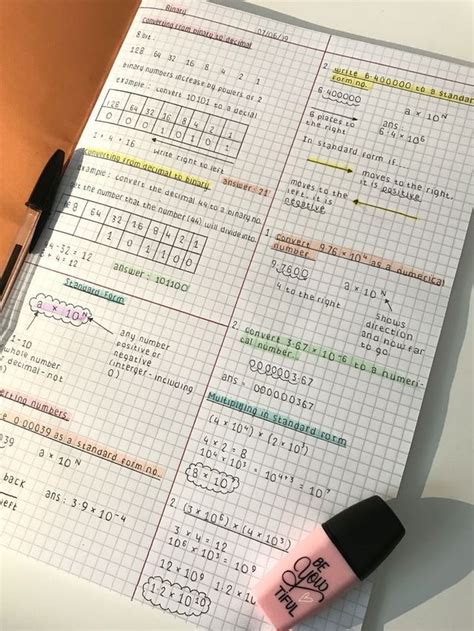 Binary
07/06/19
converting from binary to decimal
8 bit:
128 64 32 16 8 4 2 1
Binary numbers increase by powers of 2
example: convert 10101 to a decial
128 64 32 16 8 4 2 1
0 0 0 1 0 1 0 1
1 + 4 + 16
write right to left
answer: 21
converting from decimal to binary
Example: convert the decimal 44 to a binary no.
out the number that the number (44) will divide into.
128 64 32 16 8 4 2 1
0 1 0 1 1 0 0
44 - 32 = 12
+ 4 = 12
answer: 101100
Standard Form
a × 10ᴺ
1 - 10
whole number
decimal - not
0)
any number
positive or
negative
(interger - including
0)
erting numbers
0.00039 as a standard form no.
039
a × 10ᴺ
back
vert
ans: 3.9 × 10⁻⁴
2. write 6.400000 to a standard
form no.
6.400000
a × 10ᴺ
6 places to
the right
ans:
6.4 × 10⁶
In standard form if
moves to the right.
it is positive
moves to the
left. it is
negative
1. Convert 9.76 × 10⁴ as a numerical
number
9.7600
a × 10ᴺ
4 to the right
shows
direction
and how far
to go!
2. convert 3.67 × 10⁻⁶ to a numeri-
cal number
000003.67
ans = 000000367
Multiplying in standard form
(4 × 10⁴) × (2 × 10³)
4 × 2 = 8
10⁴ × 10³ = 10⁴⁺³ = 10⁷
8 × 10⁷
2. (3 × 10⁶) × (4 × 10³)
3 × 4 = 12
10⁶ × 10³ = 10⁹
12 × 10⁹
1.2 × 10¹⁰
BE
YOU
TIFUL